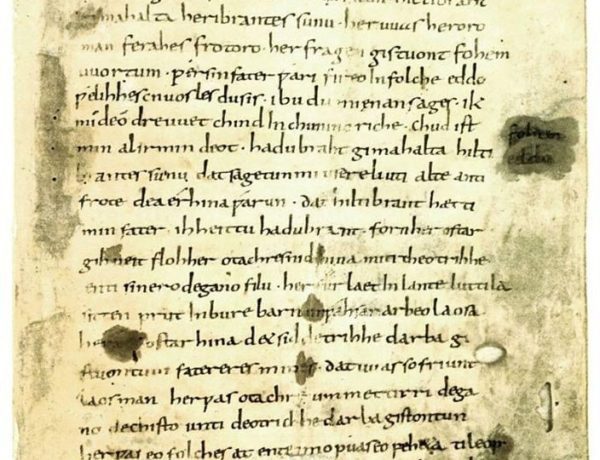 gimahalta heribrantes sunu · her uuas heroro
man ferahes frotoro · her fragen gistuont fohem
uuortum · ƿer sin fater ƿari fireo In folche eddo
ƿelihhes cnuosles du sis · ibu du mi enan sages · ik
mideo dre uuet chind In chunincriche · chud ist
min alirmin deot · hadubraht gimahalta hilti
brantes sunu dat sagetun mi usere liuti alte anti
frote dea érhina ƿarun · dat hiltibrant hætti
min fater · ih heittu hadubrant · forn her ostar
gihueit floh her otachres nid hina miti theotrihhe
enti sinero degano filu · her furlaet In lante luttila
sitten prut In bure barn unƿahsan arbeo laosa
heraet ostar hina det sid detrihhe darba gi
stuontum fatereres mines · dat uuas so friunt
laos man her ƿas otachre ummettirri dega
no dechisto unti deotrichhe darba gistontun
her ƿas eo folches at ente imo ƿuas eo ƿeheta ti leop